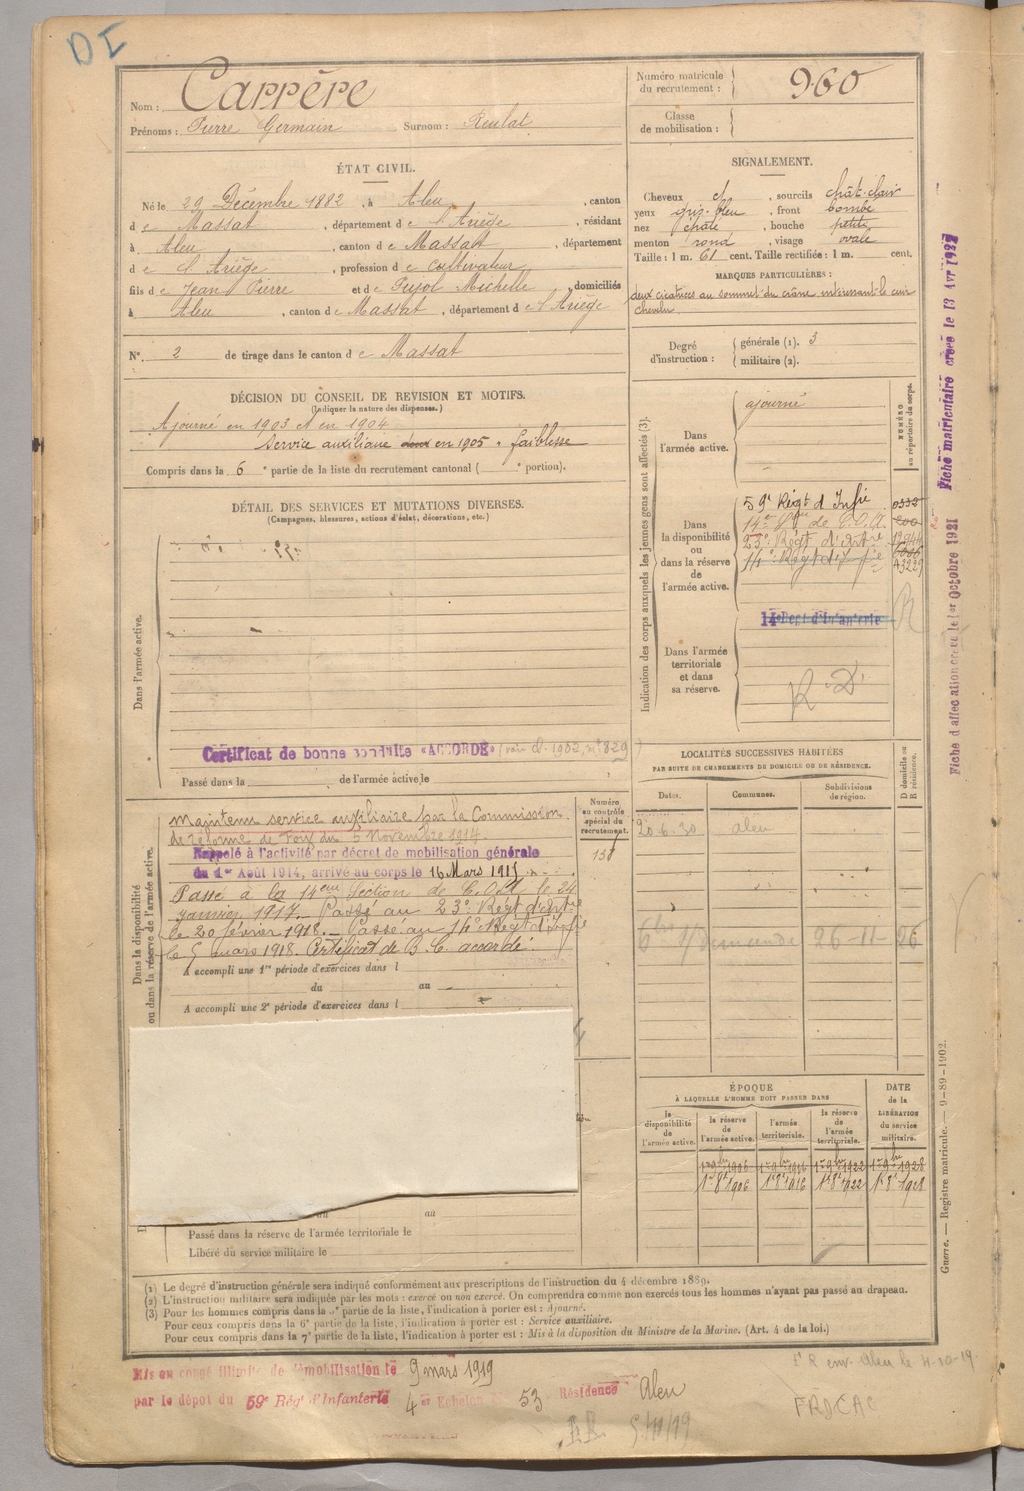 DI
Nom : Carrère
Prénoms : Pierre Germain Surnom : Reulat
Numéro matricule du recrutement : 960
Classe de mobilisation :
ÉTAT CIVIL.
Né le 29 Décembre 1882, à Aleu, canton
de Massat, département de l'Ariège, résidant
à Aleu, canton de Massat, département
de l'Ariège, profession de cultivateur
fils de Jean Pierre et de Pujol Michelle, domiciliés
à Aleu, canton de Massat, département de l'Ariège
N° 2 de tirage dans le canton de Massat
SIGNALEMENT.
Cheveux et, sourcils chât-clair
yeux gris-bleu, front bombé
nez, bouche petite
menton rond, visage ovale
Taille : 1 m. 61 cent. Taille rectifiée : 1 m. cent.
MARQUES PARTICULIÈRES :
deux cicatrices au sommet du crâne intéressant le cuir
chevelu.
Degré d'instruction : générale (1). 3
militaire (2).
DÉCISION DU CONSEIL DE REVISION ET MOTIFS.
(Indiquer la nature des dispenses.)
Ajourné en 1903 et en 1904
Service auxiliaire en 1905 faiblesse
Compris dans la 6e partie de la liste du recrutement cantonal ( e portion).
DÉTAIL DES SERVICES ET MUTATIONS DIVERSES.
(Campagnes, blessures, actions d'éclat, décorations, etc.)
Dans l'armée active.
Certificat de bonne conduite «ACCORDÉ» (voir d. 1902, n° 829)
Passé dans la de l'armée active le
Indication des corps auxquels les jeunes gens sont affectés (3).
NUMÉRO au répertoire du corps.
Dans l'armée active. ajourné
Dans la disponibilité ou dans la réserve de l'armée active.
59e Régt d'Infie
14e Son de C.O.A.
23e Régt d'Artie
14e Régt d'Infie
14e Regt d'Infanterie
R
Dans l'armée territoriale et dans sa réserve.
R.D.
Dans la disponibilité ou dans la réserve de l'armée active.
Numéro au contrôle spécial du recrutement.
Maintenu service auxiliaire par la Commission
de réforme de Foix du 5 Novembre 1914.
Rappelé à l'activité par décret de mobilisation générale
du 1er Août 1914, arrivé au corps le 16 Mars 1915
Passé à la 14eme Section de C.O.A. le 24
Janvier 1917. Passé au 23e Régt d'Artie
le 20 février 1918. Passé au 14e Régt d'Infie
le 5 mars 1918. Certificat de B. C. accordé.
A accompli une 1re période d'exercices dans l
du au
A accompli une 2e période d'exercices dans l
au
Passé dans la réserve de l'armée territoriale le
Libéré du service militaire le
LOCALITÉS SUCCESSIVES HABITÉES
PAR SUITE DE CHANGEMENTS DE DOMICILE OU DE RÉSIDENCE.
Dates. Communes. Subdivisions de région. D domicile ou R résidence.
20-6-30 Aleu
26-11-26
ÉPOQUE
À LAQUELLE L'HOMME DOIT PASSER DANS
la disponibilité de l'armée active. la réserve de l'armée active. l'armée territoriale. la réserve de l'armée territoriale. DATE de la LIBÉRATION du service militaire.
1er 9bre 1906 1er 9bre 1916 1er 9bre 1922 1er 9bre 1928
1er 8e 1906 1er 8e 1916 1er 8e 1922 1er 8e 1928
(1) Le degré d'instruction générale sera indiqué conformément aux prescriptions de l'instruction du 4 décembre 1889.
(2) L'instruction militaire sera indiquée par les mots : exercé ou non exercé. On comprendra comme non exercés tous les hommes n'ayant pas passé au drapeau.
(3) Pour les hommes compris dans la 5e partie de la liste, l'indication à porter est : Ajourné.
Pour ceux compris dans la 6e partie de la liste, l'indication à porter est : Service auxiliaire.
Pour ceux compris dans la 7e partie de la liste, l'indication à porter est : Mis à la disposition du Ministre de la Marine. (Art. 4 de la loi.)
Mis en congé illimité de démobilisation le 9 mars 1919
par le dépôt du 59e Rég' d'Infanterie 4 Echelon 53 Résidence Aleu
5/10/19
FRICAC
Fiche matriculaire créée le 13 Avr 1927
Fiche d'affectation créée le 1er Octobre 1921
Guerre. — Registre matricule. — 9-89-1902.